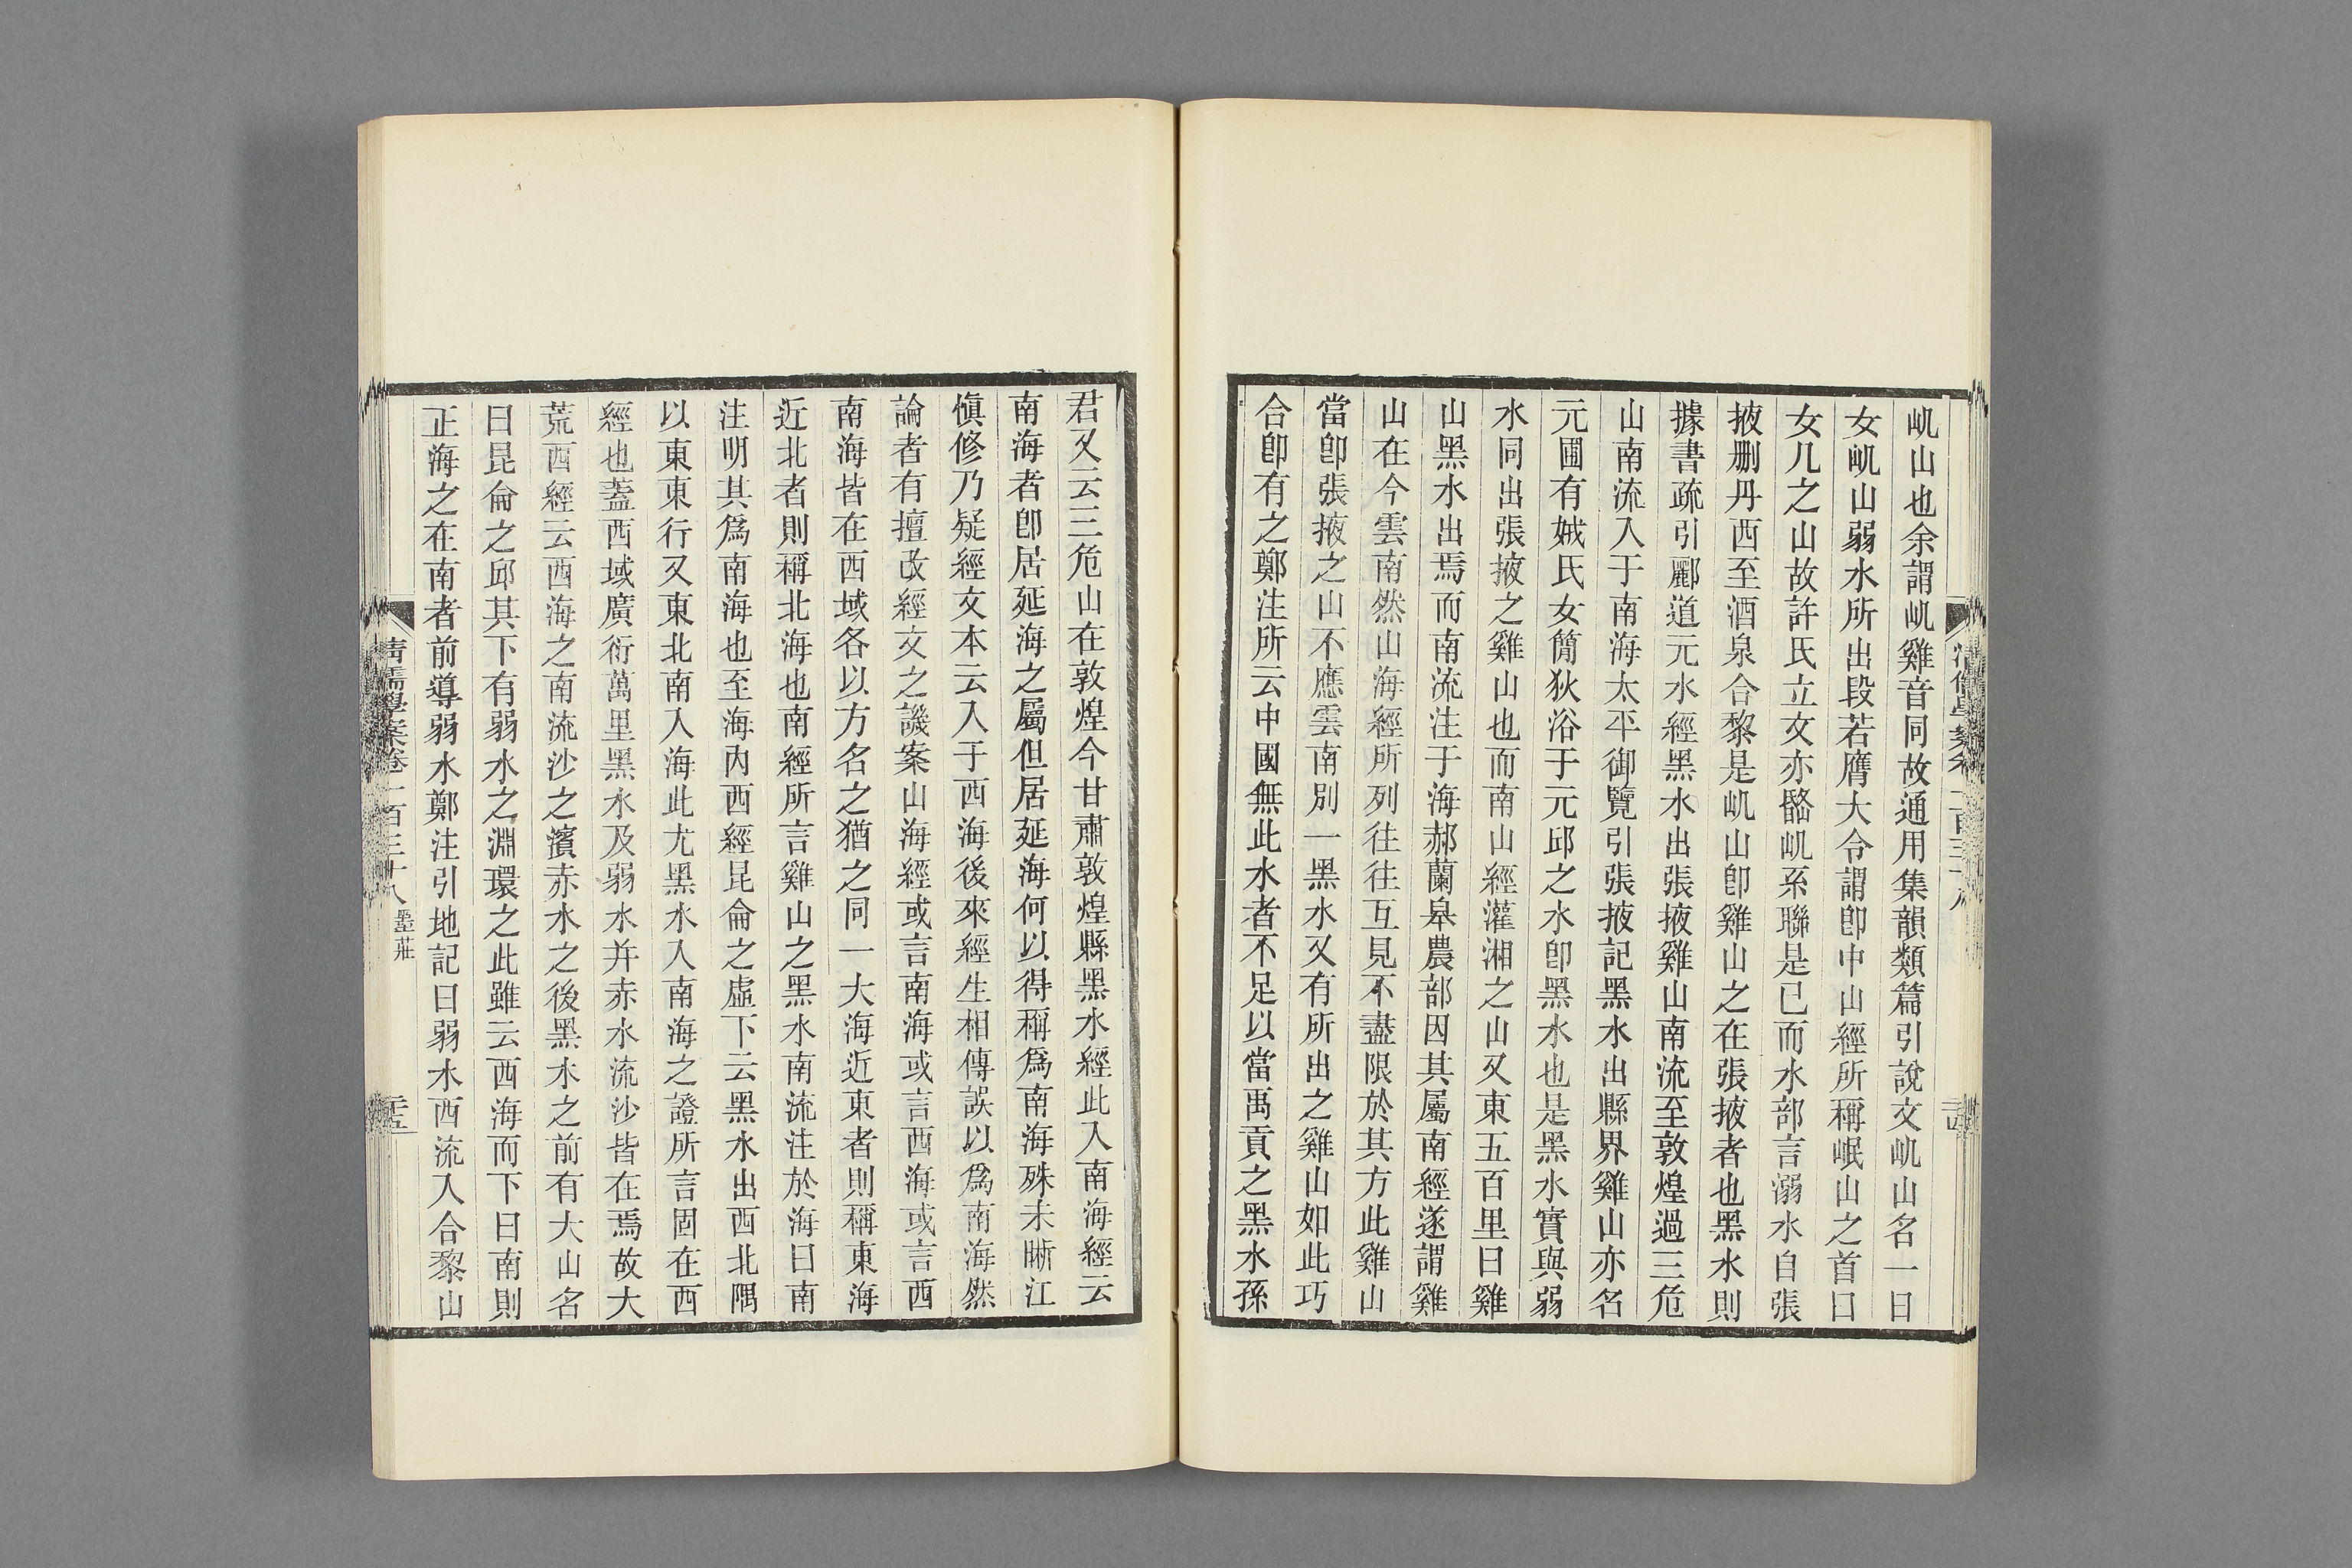 屼山也余謂屼雞音同故通用集韻類篇引說文屼山名一曰
女屼山弱水所出段若膺大令謂卽中山經所稱岷山之首曰
女几之山故許氏立文亦嶅屼系聯是已而水部言溺水自張
掖刪丹西至酒泉合黎是屼山卽雞山之在張掖者也黑水則
據書疏引酈道元水經黑水出張掖雞山南流至敦煌過三危
山南流入于南海太平御覽引張掖記黑水出縣界雞山亦名
元圃有娀氏女簡狄浴于元邱之水卽黑水也是黑水實與弱
水同出張掖之雞山也而南山經灌湘之山又東五百里曰雞
山黑水出焉而南流注于海郝蘭皋農部因其屬南經遂謂雞
山在今雲南然山海經所列往往互見不盡限於其方此雞山
當卽張掖之山不應雲南別一黑水又有所出之雞山如此巧
合卽有之鄭注所云中國無此水者不足以當禹貢之黑水孫
清儒學案卷一百三十八
二十四
君又云三危山在敦煌今甘肅敦煌縣黑水經此入南海經云
南海者卽居延海之屬但居延海何以得稱爲南海殊未晰江
愼修乃疑經文本云入于西海後來經生相傳誤以爲南海然
論者有擅改經文之譏案山海經或言南海或言西海或言西
南海皆在西域各以方名之猶之同一大海近東者則稱東海
近北者則稱北海也南經所言雞山之黑水南流注於海曰南
注明其爲南海也至海內西經昆侖之虛下云黑水出西北隅
以東東行又東北南入海此尤黑水入南海之證所言固在西
經也蓋西域廣衍萬里黑水及弱水并赤水流沙皆在焉故大
荒西經云西海之南流沙之濱赤水之後黑水之前有大山名
曰昆侖之邱其下有弱水之淵環之此雖云西海而下曰南則
正海之在南者前導弱水鄭注引地記曰弱水西流入合黎山
清儒學案卷一百三十八 墨莊
二十五